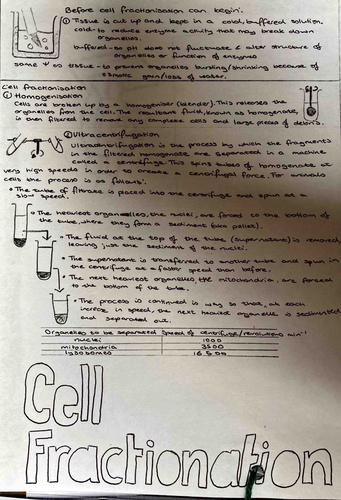 Before cell fractionisation can begin:
① Tissue is cut up and kept in a cold, buffered solution.
cold - to reduce enzyme activity that may break down
organelles.
buffered - so pH does not fluctuate & alter structure of
organelles or function of enzymes
same Ψ as tissue - to prevent organelles bursting/shrinking because of
osmotic gain/loss of water.
Cell fractionisation
① Homogenisation
Cells are broken up by a homogeniser (blender). This releases the
organelles from the cell. The resultant fluid, known as homogenate,
is then filtered to remove any complete cells and large pieces of debris.
② Ultracentrifugation
Ultracentrifugation is the process in which the fragments
in the filtered homogenate are separated in a machine
called a centrifuge. This spins tubes of homogenate at
very high speeds in order to create a centrifugal force. For animals
cells the process is as follows:
• The tube of filtrate is placed into the centrifuge and spun at a
slow speed.
• The heaviest organelles, the nuclei, are forced to the bottom of
the tube, where they form a sediment (aka pellet).
• The fluid at the top of the tube (supernatant) is removed,
leaving just the sediment of the nuclei.
• The supernatant is transferred to another tube and spun in
the centrifuge at a faster speed than before.
• The next heaviest organelles, the mitochondria, are forced
to the bottom of the tube.
• The process is continued in way so that, at each
increase in speed, the next heaviest organelle is sedimented
and separated out.
Organelles to be separated Speed of centrifuge/revolutions min⁻¹
nuclei 1000
mitochondria 3500
lysosomes 16 500
Cell
Fractionation